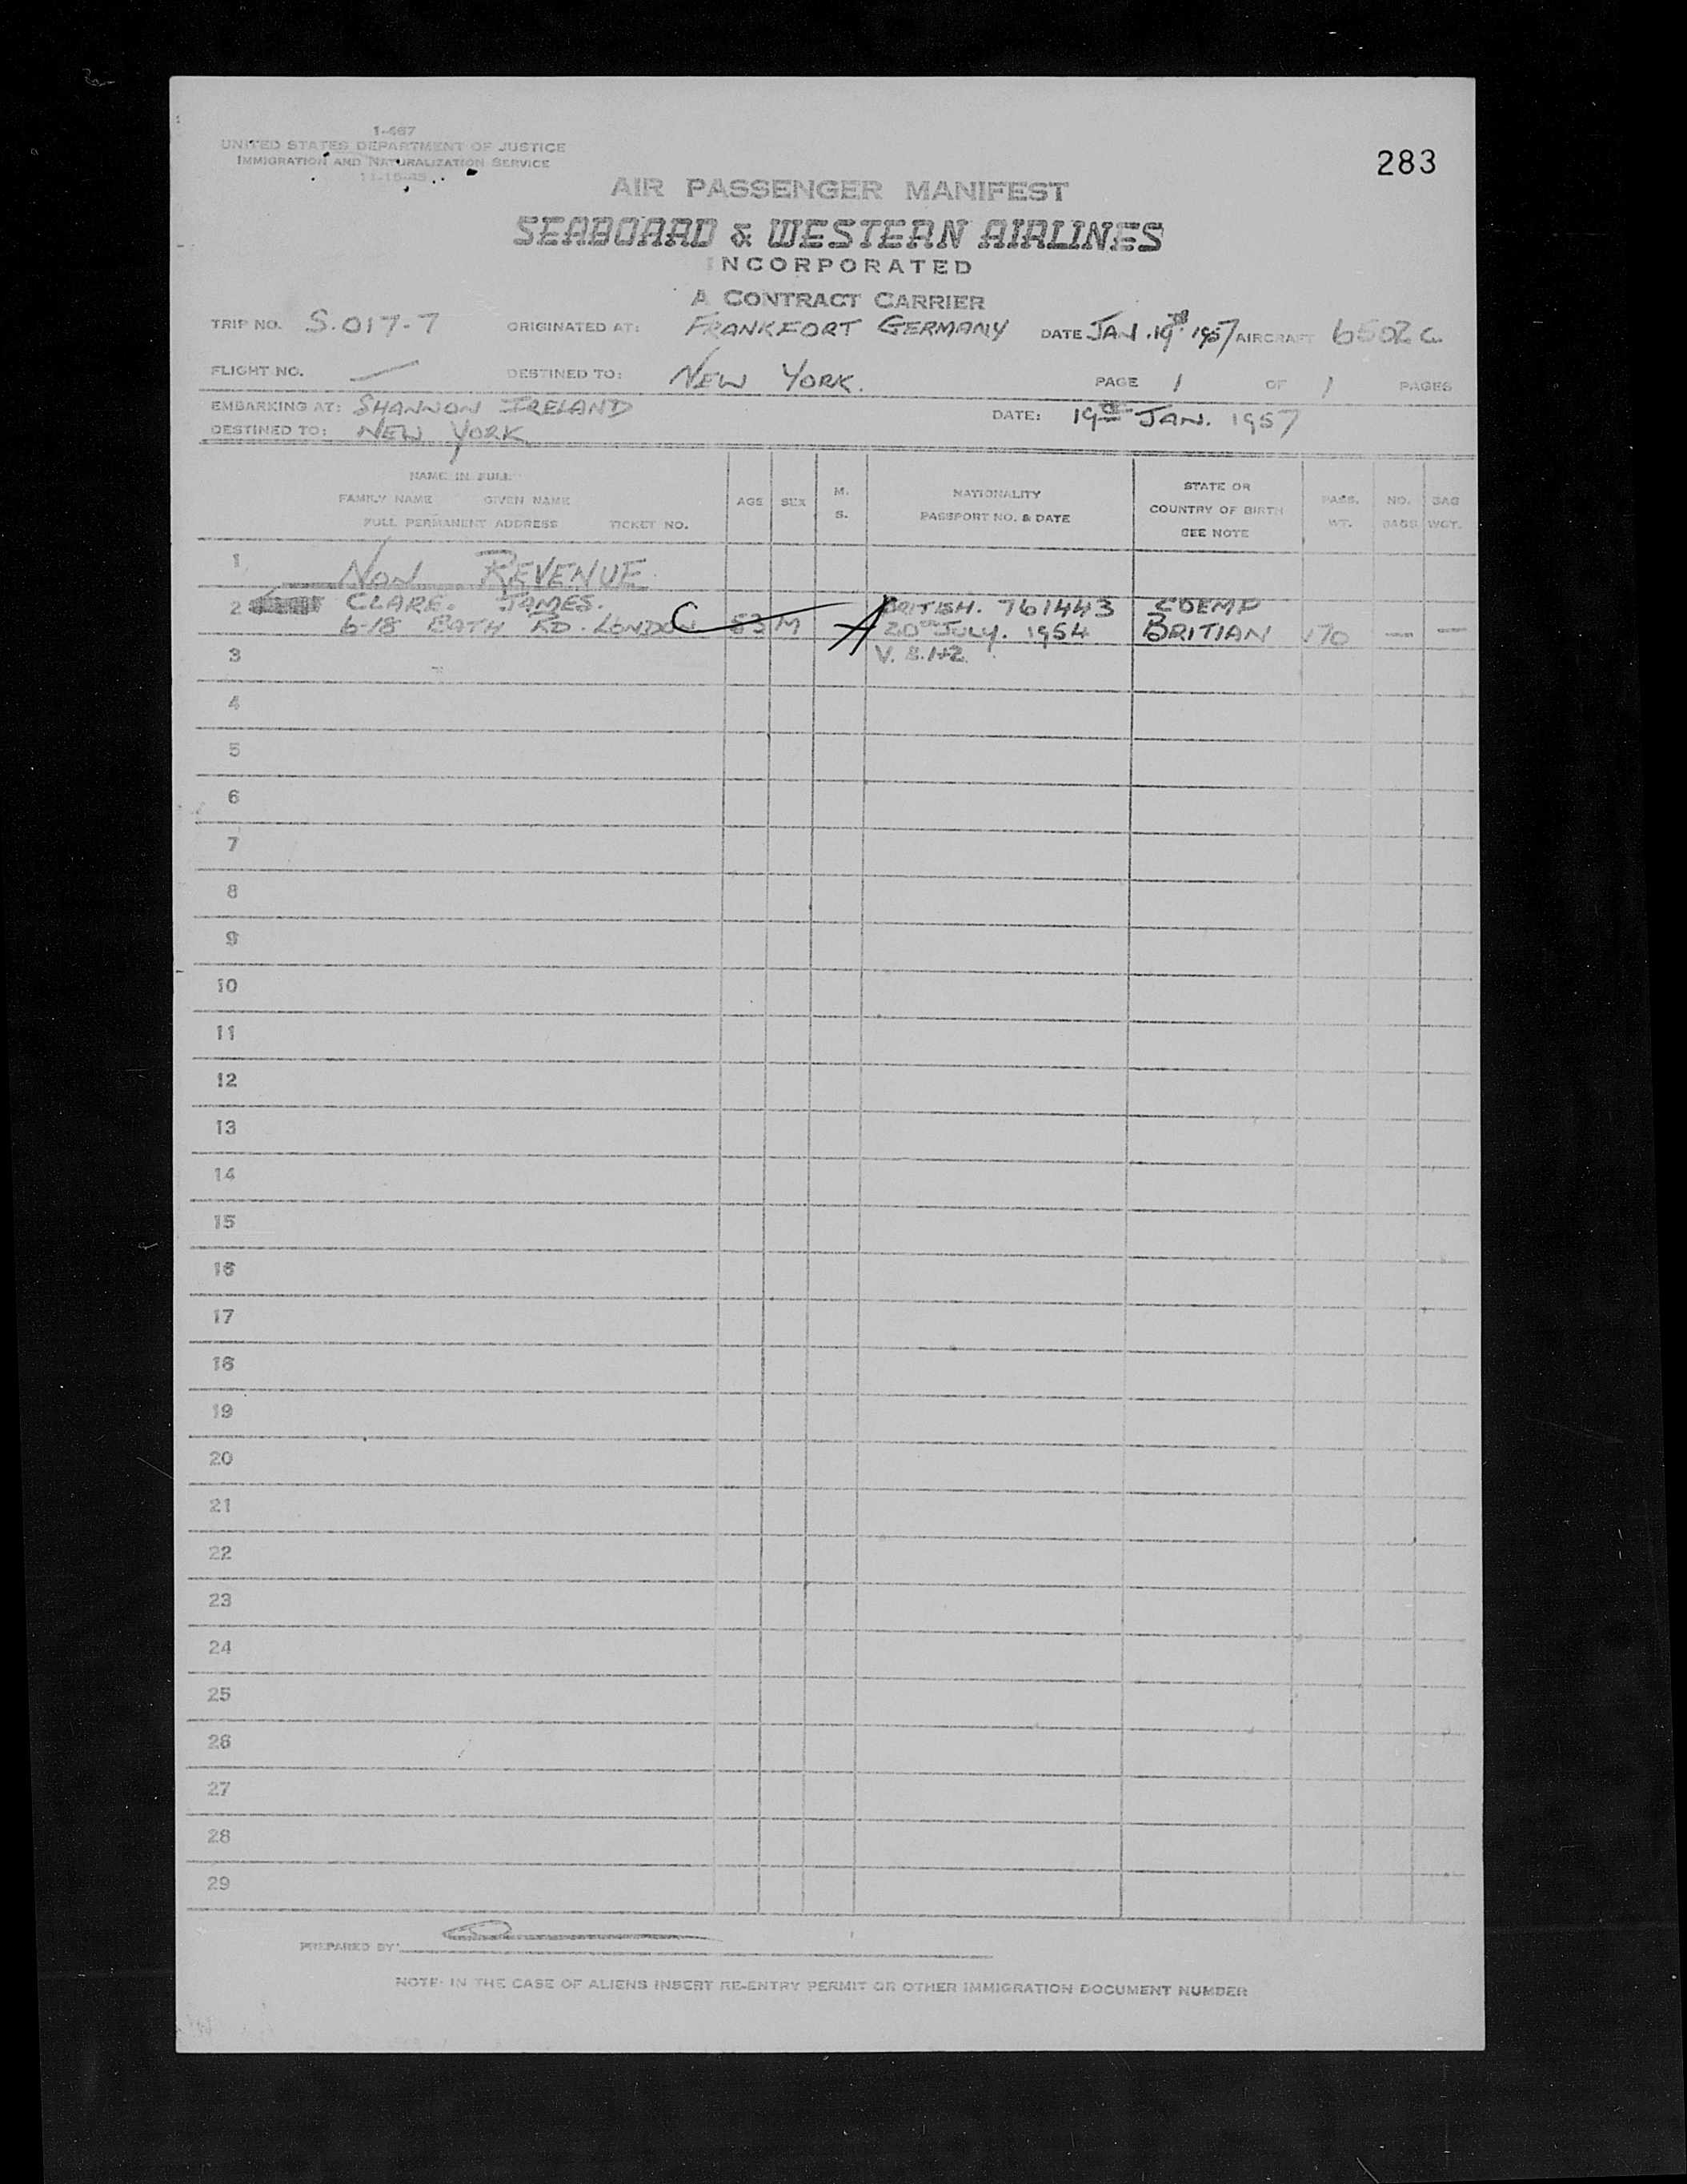 283
1-467
UNITED STATES DEPARTMENT OF JUSTICE
IMMIGRATION AND NATURALIZATION SERVICE
11-15-45
AIR PASSENGER MANIFEST
SEABOARD & WESTERN AIRLINES
INCORPORATED
A CONTRACT CARRIER
TRIP NO. S.017-7 ORIGINATED AT: FRANKFORT GERMANY DATE JAN. 19TH 1957 AIRCRAFT 6502C
FLIGHT NO. — DESTINED TO: NEW YORK. PAGE 1 OF 1 PAGES
EMBARKING AT: SHANNON IRELAND DATE: 19TH JAN. 1957
DESTINED TO: NEW YORK
NAME IN FULL
FAMILY NAME GIVEN NAME
FULL PERMANENT ADDRESS TICKET NO.
AGE SEX M. S.
NATIONALITY
PASSPORT NO. & DATE
STATE OR
COUNTRY OF BIRTH
SEE NOTE
PASS. WT.
NO. BAGS
BAG WGT.
1 NON REVENUE
2 CLARE. JAMES. BRITISH. 761443
6-18 BATH RD. LONDON C M A 20TH JULY. 1954 BRITIAN 170 — —
3 V.
4
5
6
7
8
9
10
11
12
13
14
15
16
17
18
19
20
21
22
23
24
25
26
27
28
29
PREPARED BY
NOTE: IN THE CASE OF ALIENS INSERT RE-ENTRY PERMIT OR OTHER IMMIGRATION DOCUMENT NUMBER